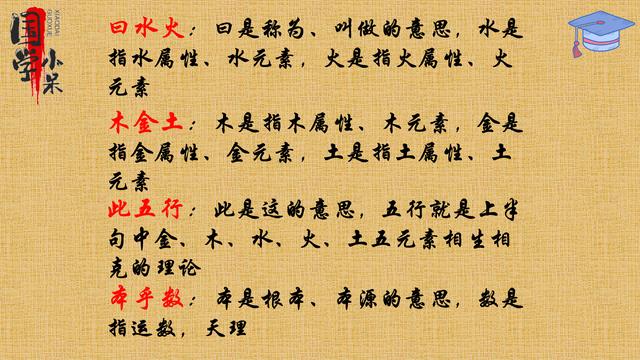 国学
小呆
XIAODAI
GUOXUE
曰水火：曰是称为、叫做的意思，水是
指水属性、水元素，火是指火属性、火
元素
木金土：木是指木属性、木元素，金是
指金属性、金元素，土是指土属性、土
元素
此五行：此是这的意思，五行就是上半
句中金、木、水、火、土五元素相生相
克的理论
本乎数：本是根本、本源的意思，数是
指运数，天理